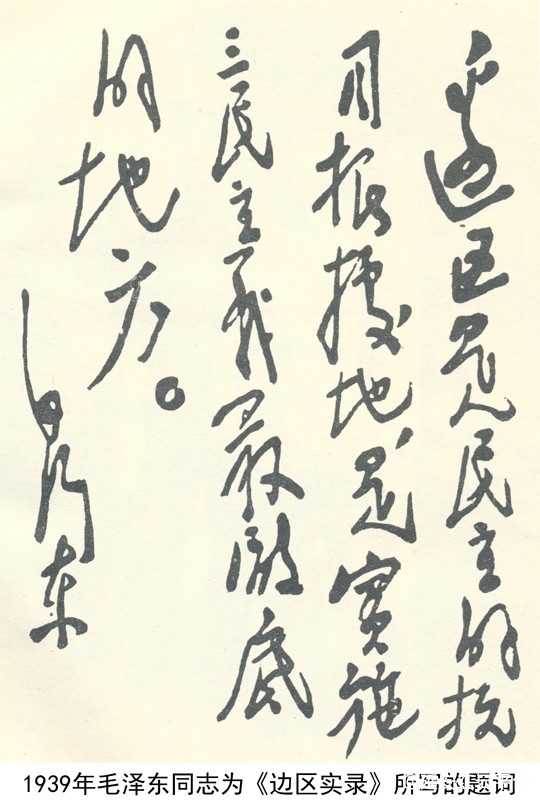 邊区是民主的抗
日根據地，是實施
三民主義最澈底
的地方。
毛泽東
1939年毛泽东同志为《边区实录》所写的题词